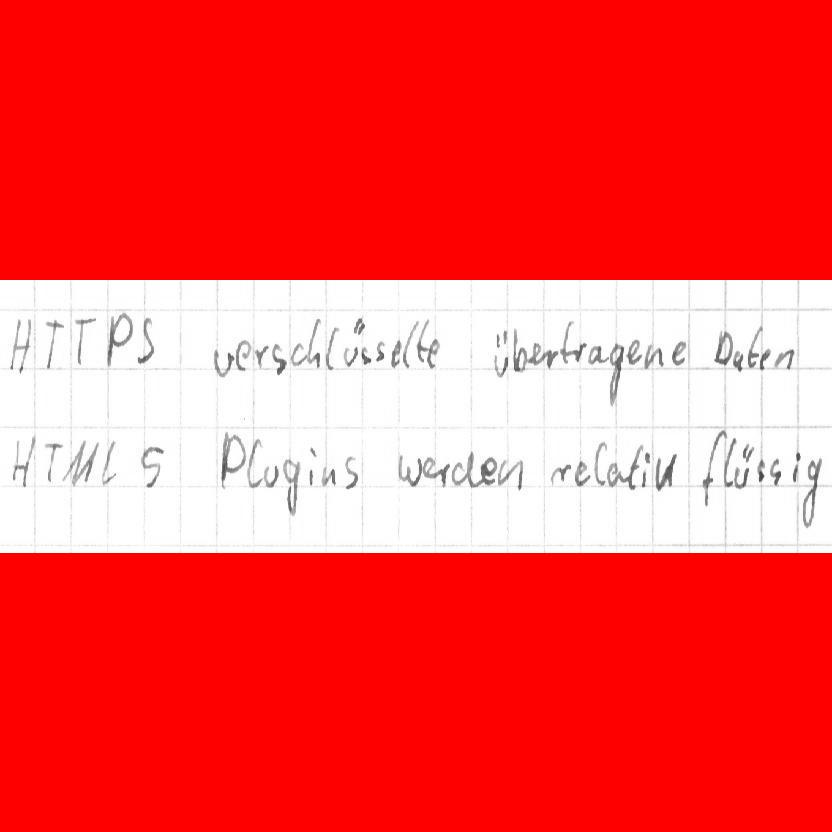 HTTPS verschlüsselte übertragene Daten
HTML 5 Plugins werden relativ flüssig